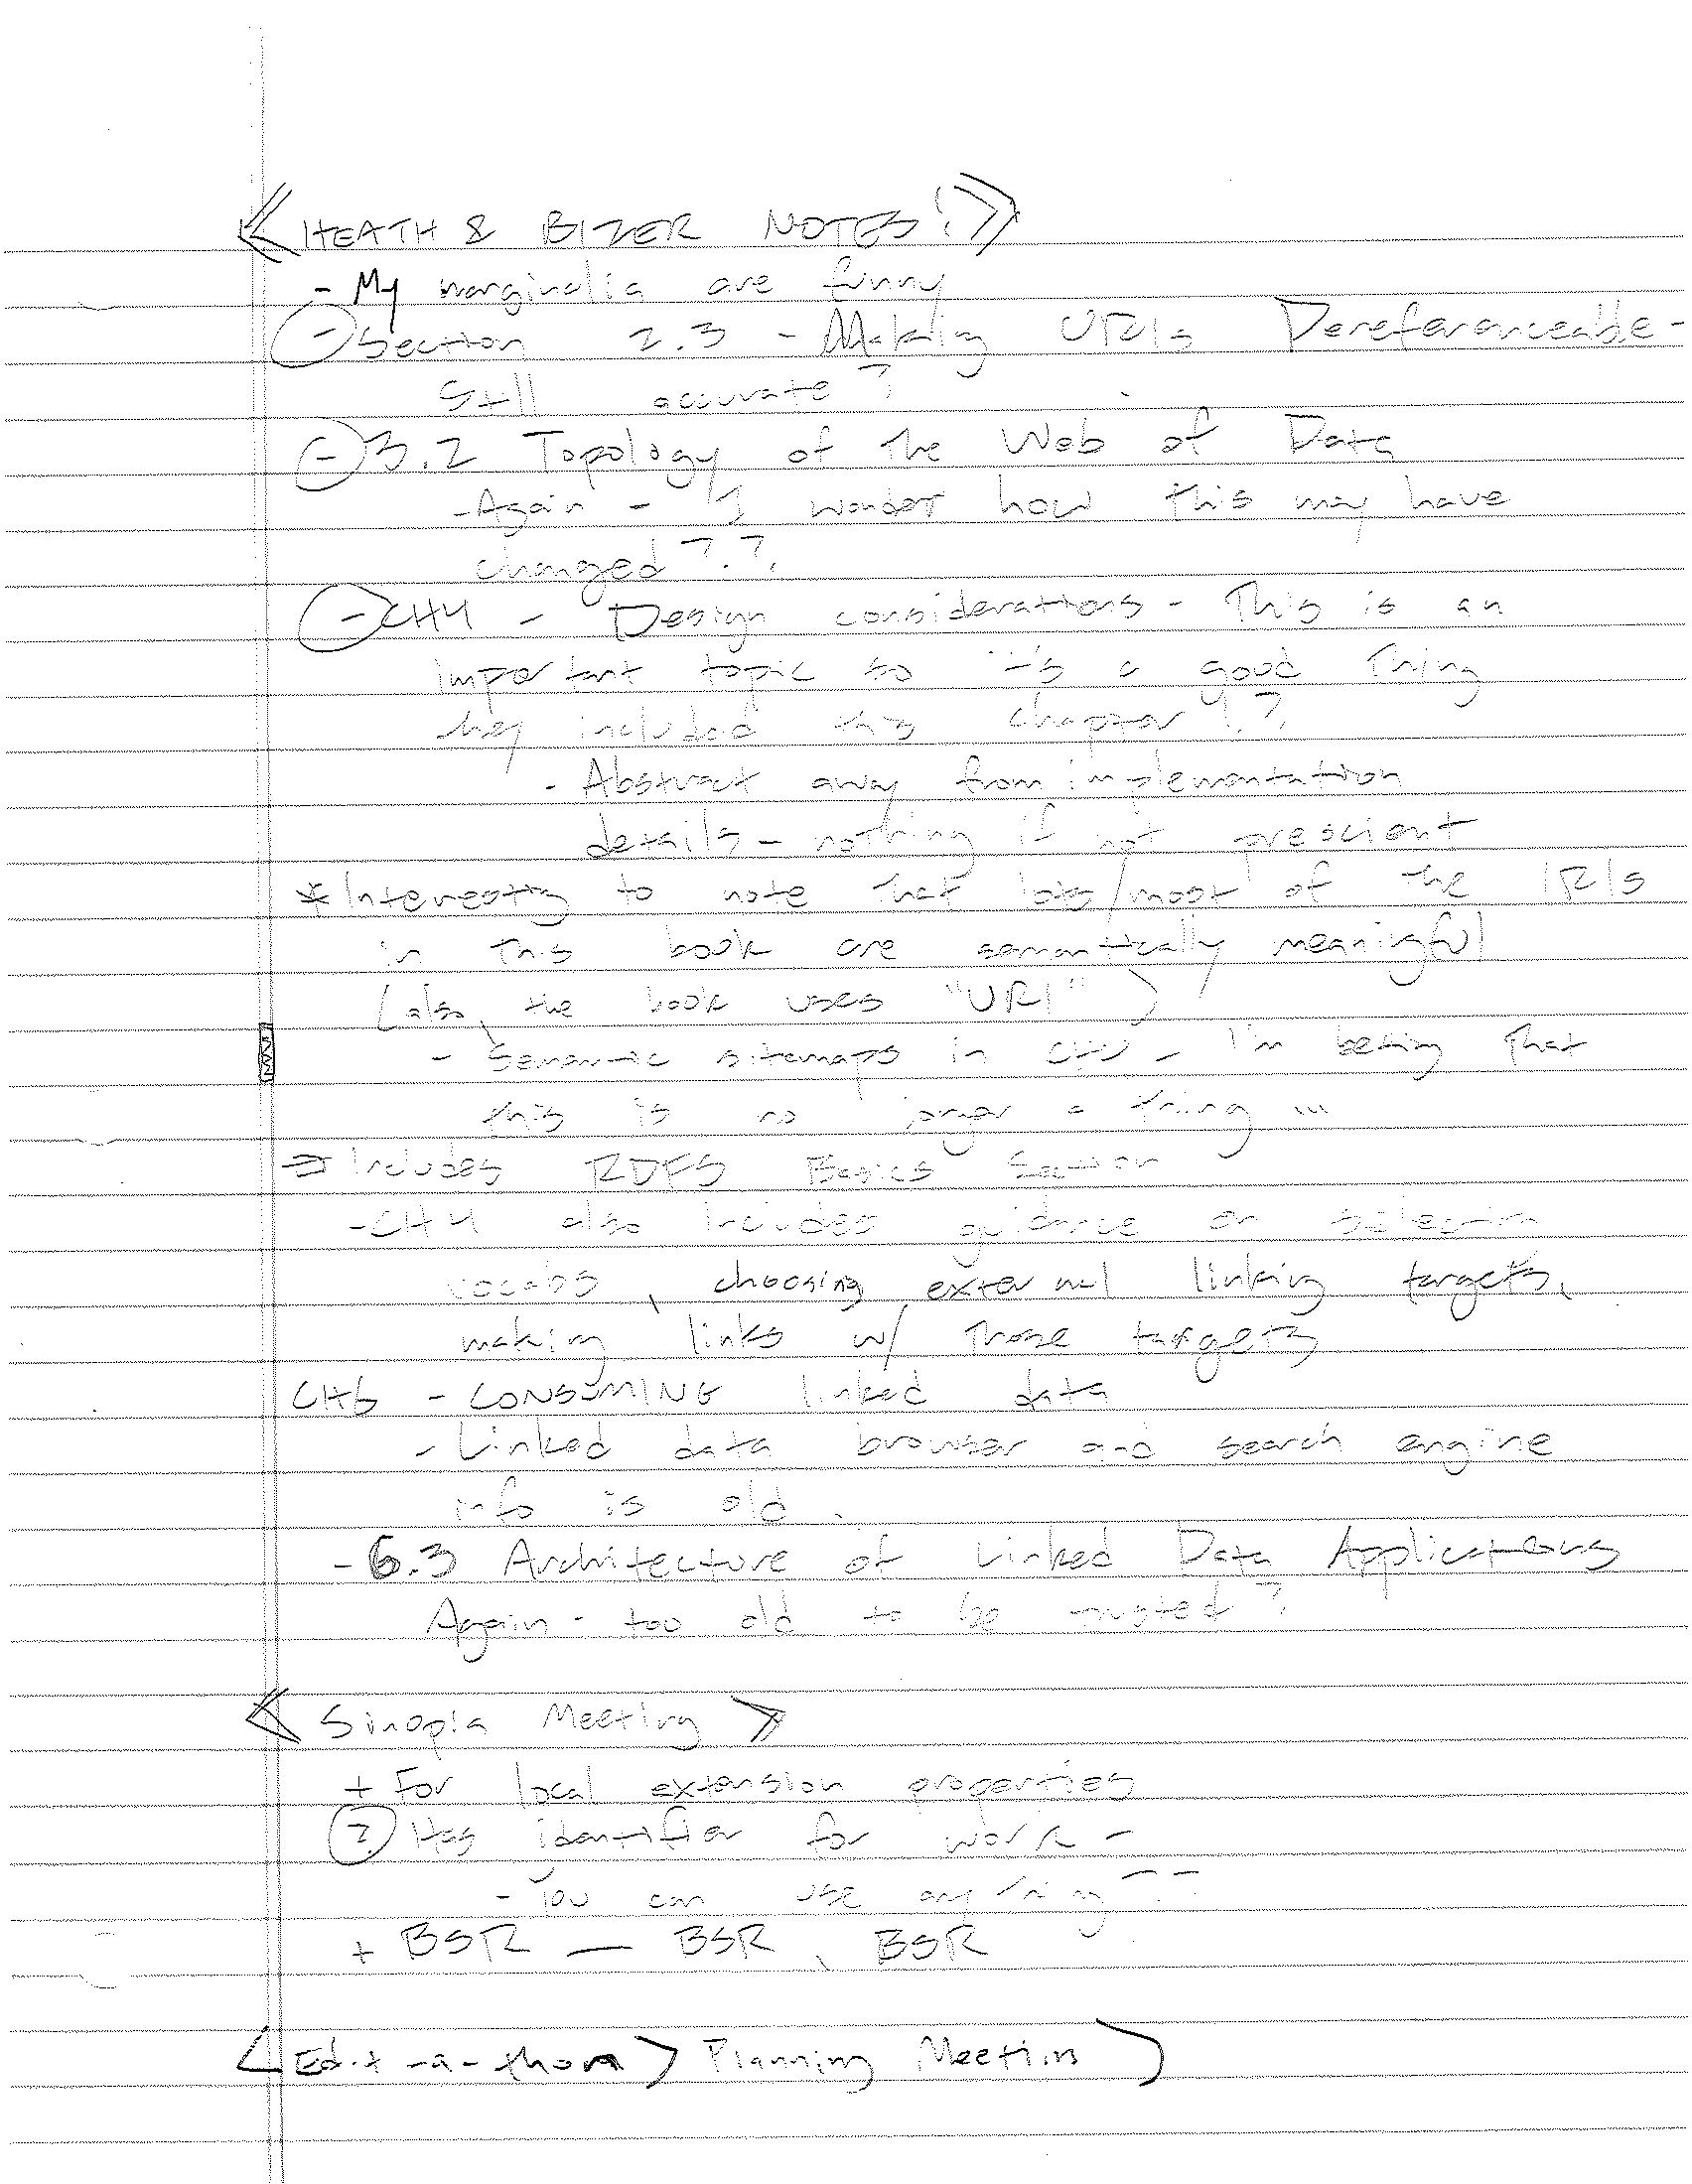 <<HEATH & BIZER NOTES!>>
- My marginalia are funny
- Section 2.3 - Making URIs Dereferenceable -
Still accurate?
- 3.2 Topology of the Web of Data
- Again - I wonder how this may have
changed??
- CH4 - Design considerations - This is an
important topic so it's a good thing
they included this chapter!?
- Abstract away from implementation
details - nothing if not prescient
* Interesting to note that lots/most of the IRIs
in this book are semantically meaningful
(also, the book uses "URI")
- Semantic sitemaps in CH4 - I'm betting that
this is no longer a thing ...
Includes RDFS Basics Section
- CH4 also includes guidance on selecting
vocabs, choosing external linking targets,
making links w/ those targets
CH6 - CONSUMING linked data
- Linked data browser and search engine
info is old.
- 6.3 Architecture of Linked Data Applications
Again - too old to be trusted?
<Sinopia Meeting>>
+ For local extension properties
? Has identifier for work -
- You can use anything??
+ BSR — BSR, BSR
<Edit-a-thon> Planning Meeting>